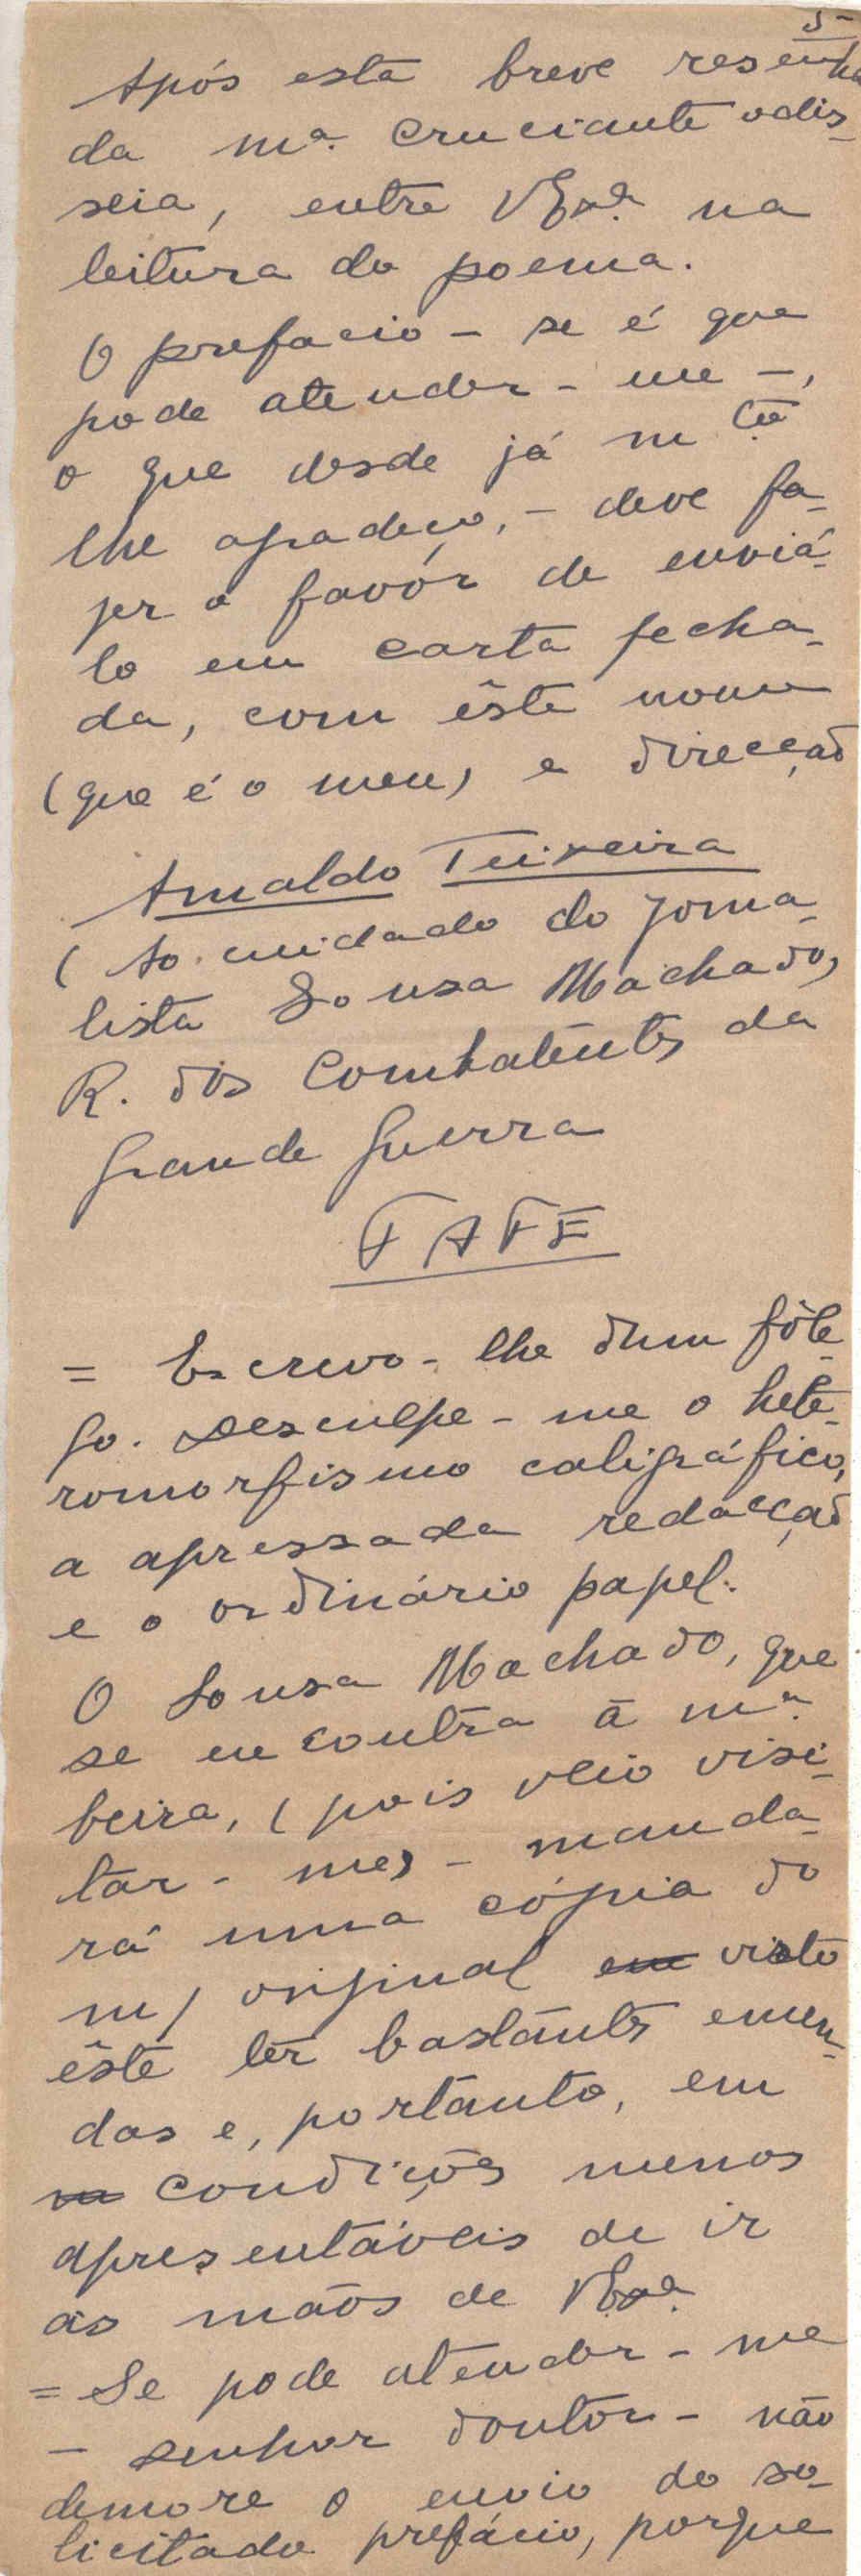 5-
Após esta breve resenha
da mª. cruciante odis-
seia, entre VExª. na
leitura do poema.
O prefacio - se é que
pode atender-me -,
o que desde já mtº
lhe agradeço, - deve fa-
zer o favôr de enviá-
lo em carta fecha-
da, com êste nome
(que é o meu) e direcção
Arnaldo Teixeira
(Ao cuidado do jorna-
lista Sousa Machado,
R. dos Combatentes da
Grande Guerra
FAFE
= Escrevo-lhe dum fôle-
go. Desculpe-me o hete-
romorfismo caligráfico,
a apressada redacção
e o ordinário papel.
O Sousa Machado, que
se encontra à mª.
beira, (pois veio visi-
tar-me) - manda-
rá uma cópia do
m/ original em visto
êste ter bastantes emen-
das e, portanto, em
condições menos
apresentáveis de ir
às mãos de VExª.
= Se pode atender-me
- senhor doutor - não
demore o envio do so-
licitado prefácio, porque